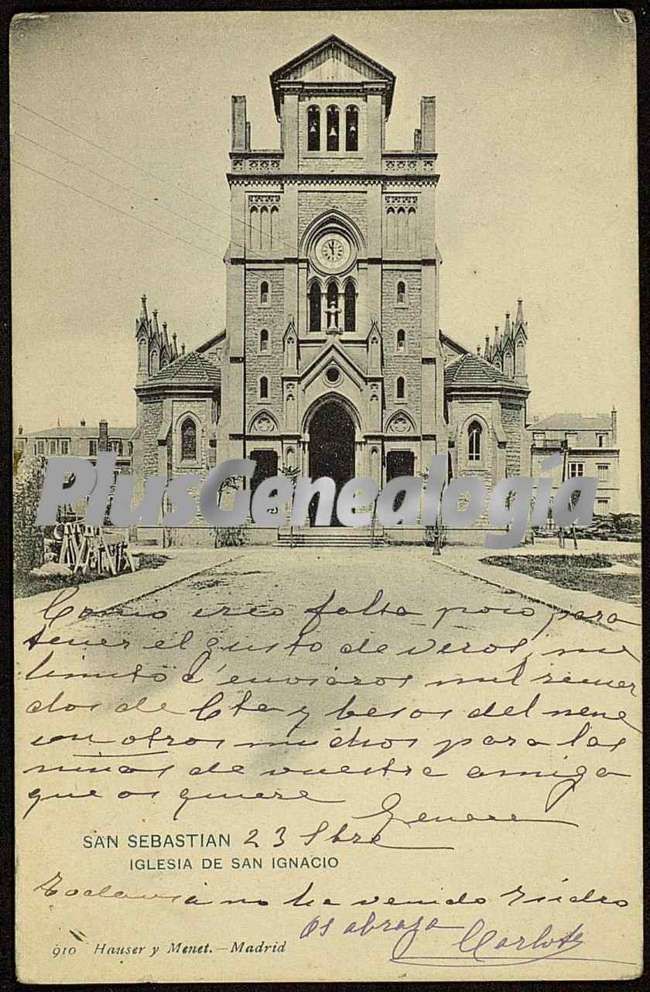 PlusGenealogía
Como creo falta poco para
tener el gusto de veros, me
limito á enviaros mil recuer
dos de Cta y besos del nene
con otros muchos para las
niñas de vuestra amiga
que os quiere
SAN SEBASTIAN 23 Sbre
IGLESIA DE SAN IGNACIO
Todavia no ha venido Isidro
Os abraza Carlota
910 Hauser y Menet.—Madrid